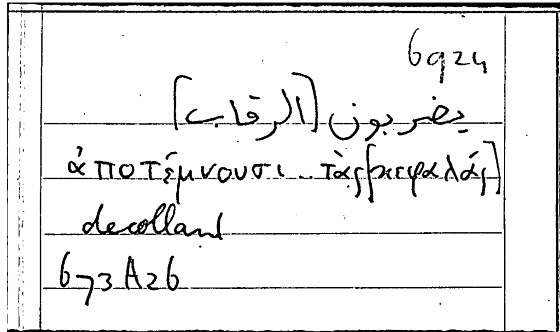 6924
يضربون [الرقاب]
ἀποτέμνουσι .. τὰς [κεφαλάς]
decollant
673A26